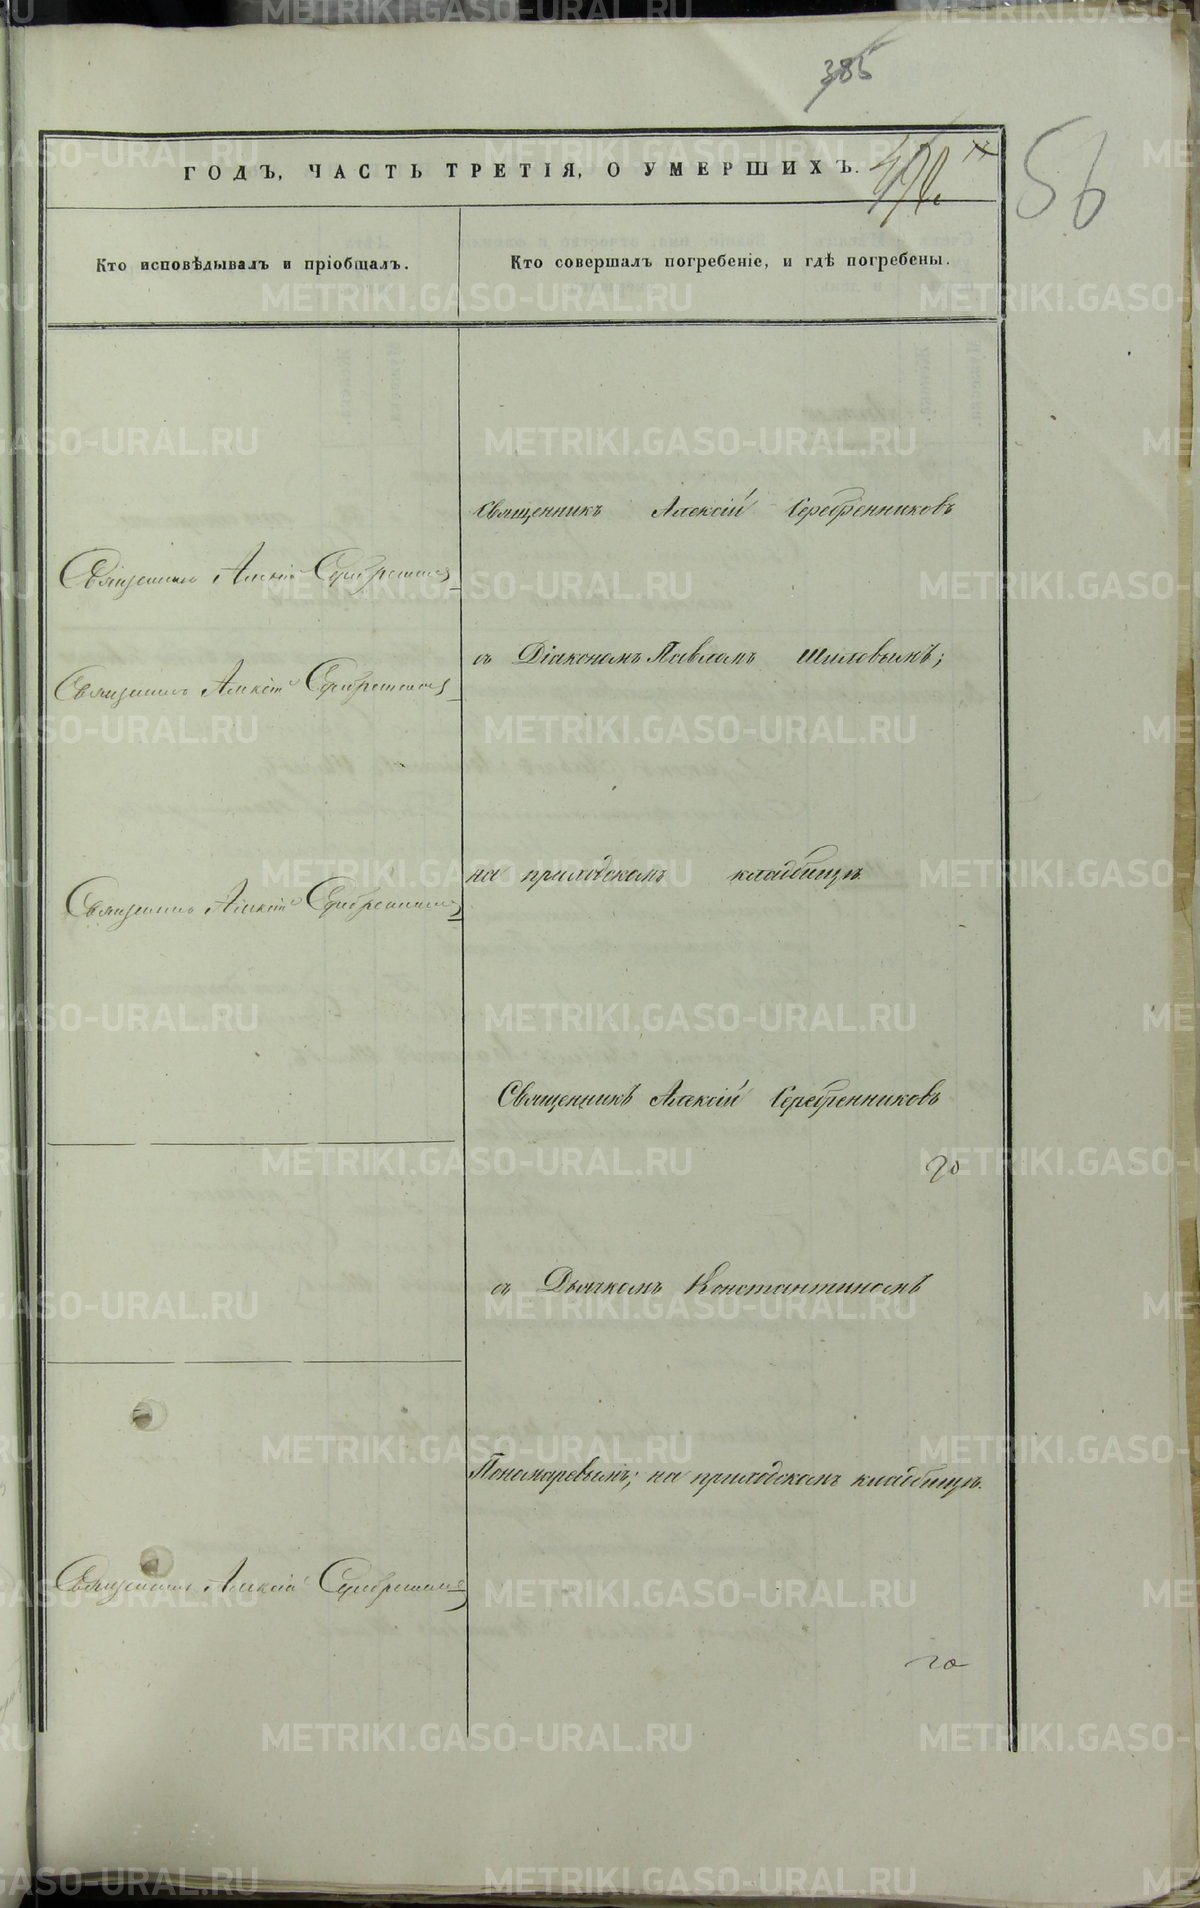 385
ГОДЪ, ЧАСТЬ ТРЕТІЯ, О УМЕРШИХЪ.
56
Кто исповѣдывалъ и пріобщалъ.
Кто совершалъ погребеніе, и гдѣ погребены.
Священникъ Алексій Серебренниковъ
Священникъ Алексій Серебренниковъ
съ Діакономъ Павломъ Шиловымъ;
Священникъ Алексій Серебренниковъ
на приходскомъ кладбищѣ
Священникъ Алексій Серебренниковъ
Священникъ Алексій Серебренниковъ
съ Дьячкомъ Константиномъ
Пономаревымъ; на приходскомъ кладбищѣ.
Священникъ Алексій Серебренниковъ
METRIKI.GASO-URAL.RU